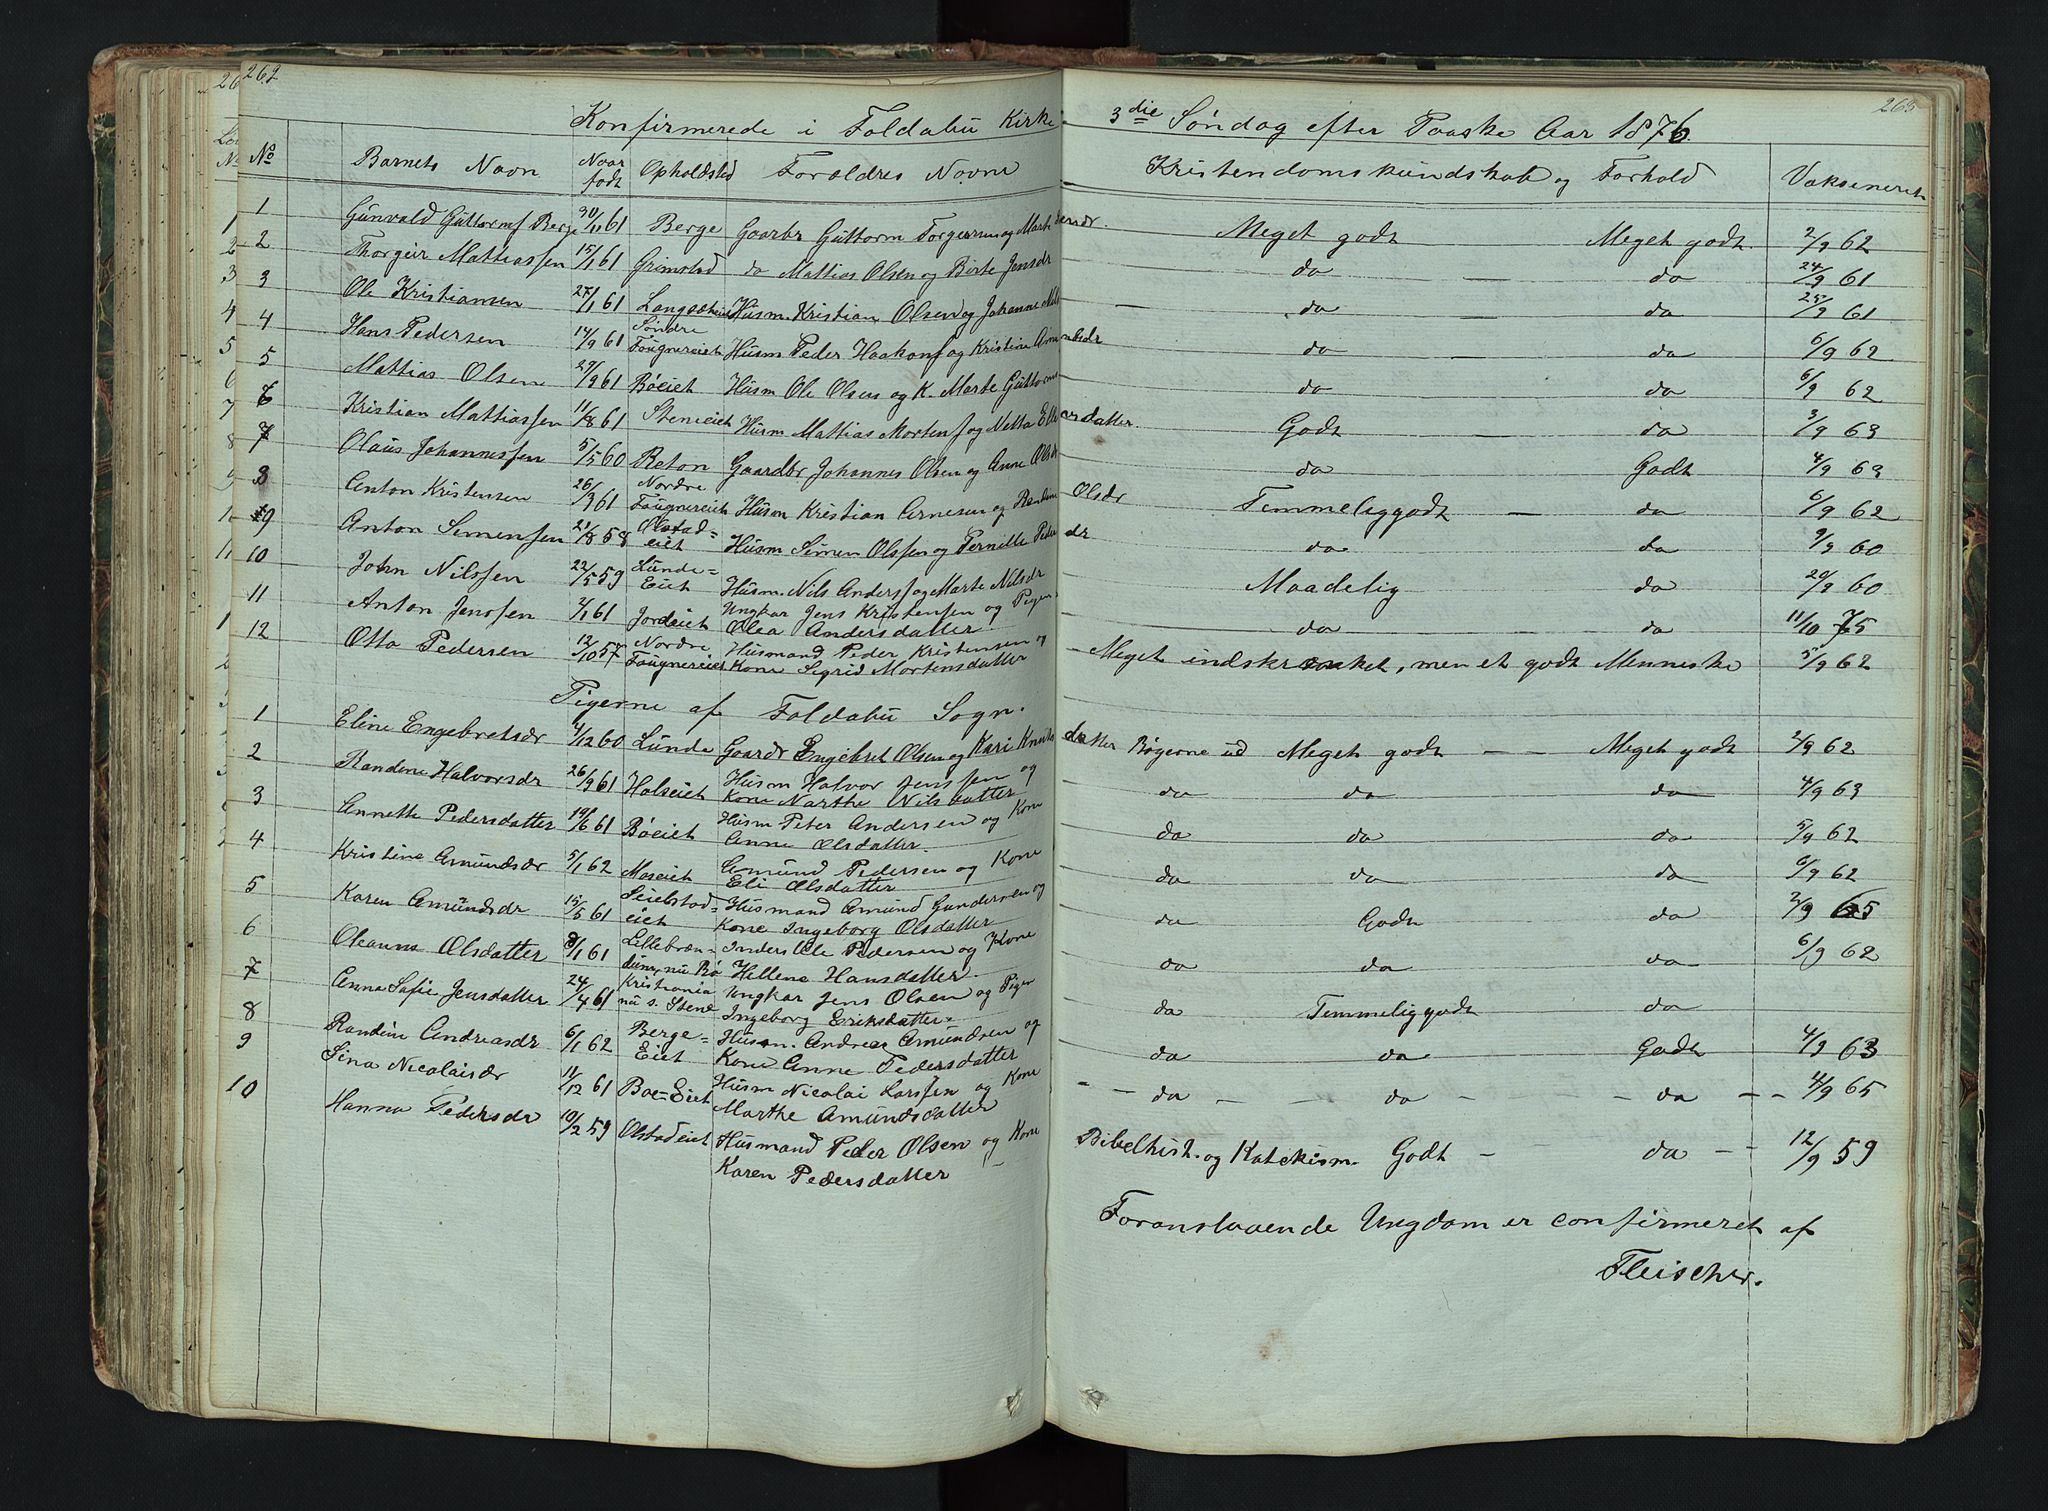 262
263
Konfirmerede i Foldabu Kirke 3die Søndag efter Paaske Aar 1876.
No Barnets Navn Naar født Opholdsted Forældres Navne Kristendomskundskab og Forhold Vaksineret
1 Gunvald Guttormf Berge 30/11 61 Berge Gaardbr Guttorm Torgersen og Marte Meget godt Meget godt 2/9 62
2 Thorgeir Mattiassen 15/1 61 Grimstad do Mattias Olsen og Birte Jensdr do — do 24/9 61
3 Ole Kristiansen 27/1 61 Husm. Kristian Olsen og Johanne — do — do 25/9 61
4 Hans Pedersen 14/9 61 Søndre Fougnereiet Husm Peder Haakonf og Kristine do — do 6/9 62
5 Mattias Olsen 29/9 61 Bøeiet Husm Ole Olsen og K. Marte Guttorms do do 6/9 62
6 Kristian Mattiassen 11/8 61 Steneiet Husm Mattias Mortenf og Netta datter. Godt do 3/9 63
7 Olaus Johannessen 5/5 60 Reton Gaardbr Johannes Olsen og Anne Olsdr do Godt 4/9 63
8 Anton Kristensen 26/3 61 Nordre Fougnereiet Husm Kristian Arnesen og Randine Olsdr Temmeliggodt — do 6/9 62
9 Anton Simensen 21/8 58 Olstad= eiet Husm Simen Olssen og Pernille Peder dr do do 9/9 60
10 John Nilssen 22/5 59 Lunde= Eiet Husm. Nils Andersf og Marte Nilsdr Maadelig do 20/9 60
11 Anton Jenssen 2/1 61 Jordeiet Ungkar Jens Kristensen og Pigen Olea Andersdatter do do 11/10 75
12 Otto Pedersen 12/10 57 Nordre Fougnereiet Husmand Peder Kristensen og Kone Sigrid Mortensdatter Meget indskrænket, men et godt Menneske 5/9 62
Pigerne af Foldabu Sogn.
1 Eline Engebretsdr 4/12 60 Lunde Gaardr Engebret Olsen og Kari Knuts datter Bøgerne ud Meget godt — — Meget godt 2/9 62
2 Randine Halvorsdr 26/9 61 Holseiet Husm Halvor Jenssen og Kone Marthe Nilsdatter do do do 4/9 63
3 Annette Pedersdatter 19/6 61 Bøeiet Husm Peter Andersen og Kone Anne Olsdatter. do do do 5/9 62
4 Kristine Amundsdr 5/1 62 Moseiet Amund Pedersen og Kone Eli Olsdatter do do do 6/9 62
5 Karen Amundsdr 15/5 61 Seielstad= eiet Husmand Amund Gundersen og Kone Ingeborg Olsdatter do Godt do 2/9 65
6 Oleanna Olsdatter 8/1 61 nu Bø Inders Ole Pedersen og Kone Hellene Hansdatter do do do 6/9 62
7 Anna Sofie Jensdatter 24/4 61 Kristiania nu s. Stene Ungkar Jens Olsen og Pigen Ingeborg Eriksdatter= do Temmeliggodt do
8 Randine Andreasdr 6/1 62 Berge= Eiet Husm. Andreas Amundsen og Kone Anne Pedersdatter do do Godt 4/9 63
9 Sina Nicolaisdr 11/12 61 Boe=Eiet Husm Nicolai Larssen og Kone Marthe Amundsdatter - - do - - do - - - do - - 4/9 65
10 Hanna Pedersdr 19/2 59 Olstadeiet Husmand Peder Olsen og Kone Karen Pedersdatter Bibelhist. og Katekism. Godt - do - - 12/9 59
Foranstaaende Ungdom er confirmeret af
Fleischer.